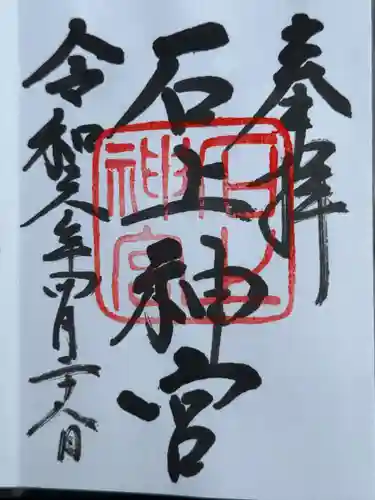 奉拝
石上神宮
令和六年四月二十八日
石上
神宮